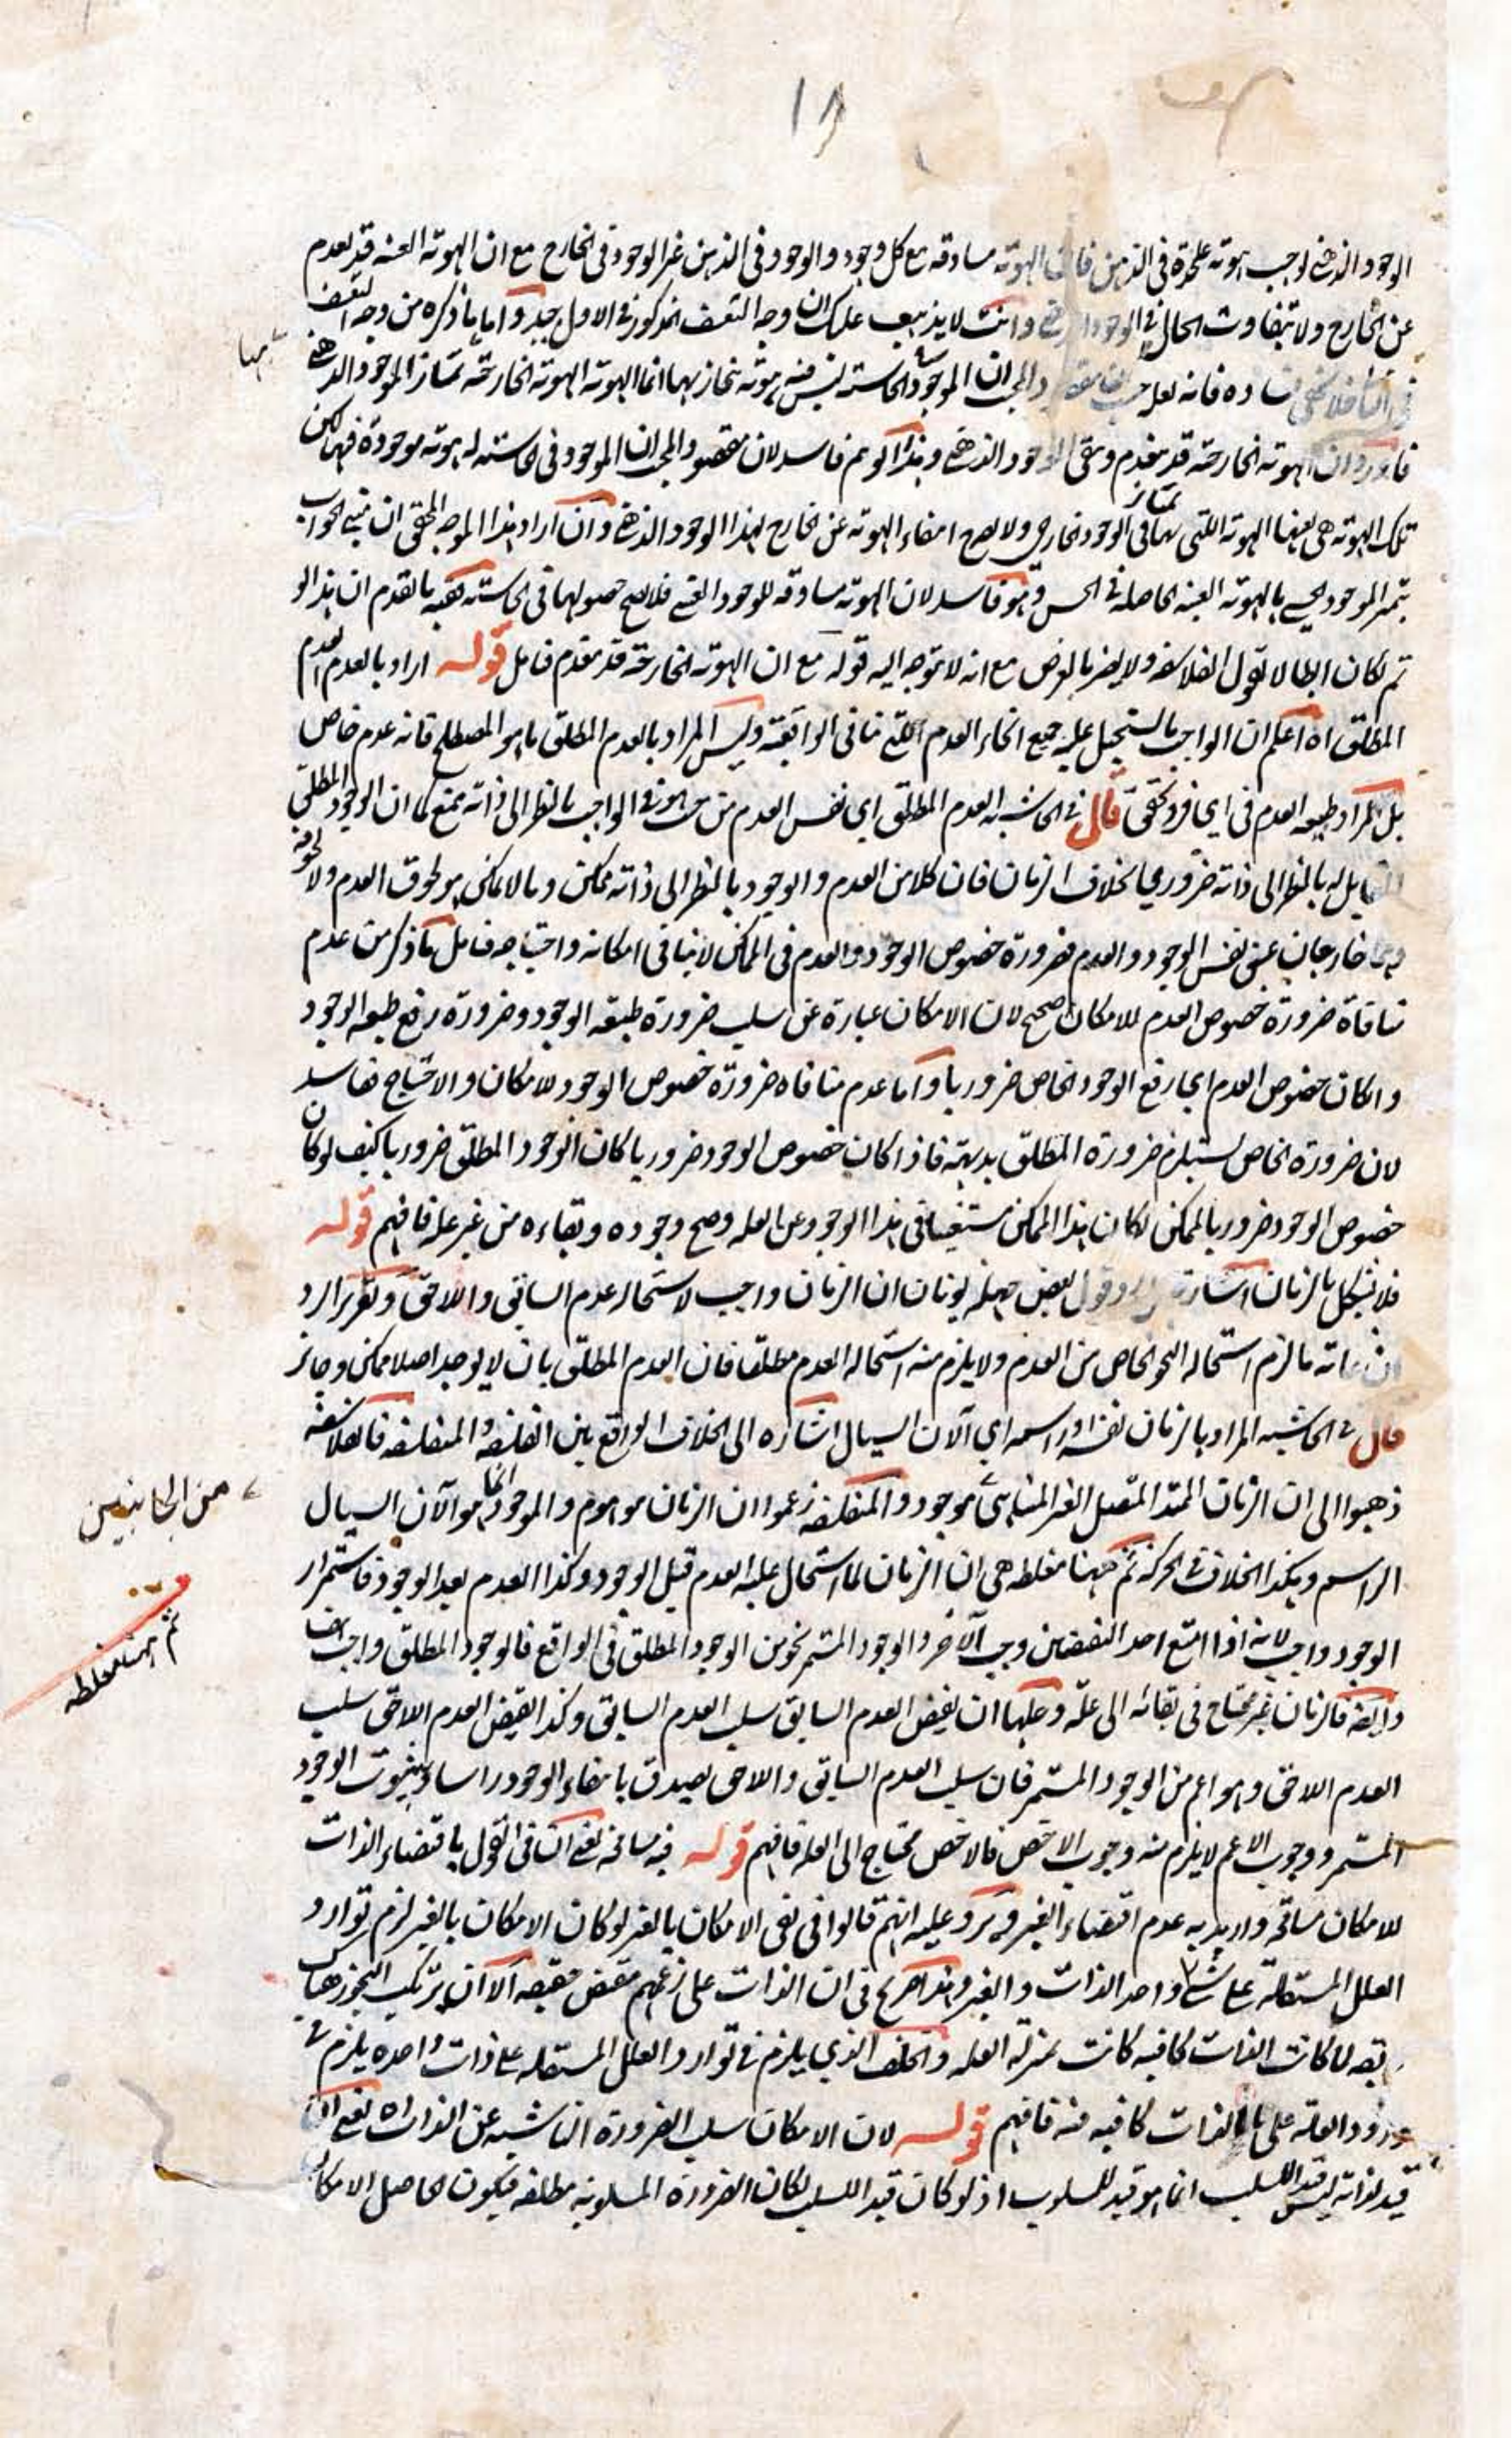 ١٨
الوجود الذهني لوجب هوية علىحدة في الذهن فان الهوية مساوقة مع كل وجود والوجود في الذهن غير الوجود في الخارج مع ان الهوية العينية قد يعدم
عن الخارج ولا يتفاوت الحال في الوجود الذهني وانت لا يذهب عليك ان وجه التعسف المذكور في الاول جيد واما ما ذكره من وجه التعسف
في الثاني فلا يخفى فساده فانه لعله ان الموجود في الحاسة ليس فيه هوية ينحاز بها انما الهوية الهوية الخارجية تمتاز الموجود الذهني
فاورد ان الهوية الخارجية قد ينعدم ويبقى الموجود الذهني وهذا كونهم فاسد لان مقصود المجيب ان الموجود في الحاسة له هوية موجودة فيها لكن
تلك الهوية هي بعينها الهوية اللتي بها تمتاز في الوجود الخارجي ولا يصح انتفاء الهوية عن الخارج لهذا الوجود الذهني وان اراد هذا الموجه المحقق ان مبنى الجواب
تميز الموجود الحسي بالهوية العينية الحاصلة في الحس وهو فاسد لان الهوية مساوقة للوجود العيني فلا يصح حصولها في الحاسة ففيه بالقدم ان هذا لو
تم لكان ابطالا لقول الفلاسفة ولا يضر بالغرض مع انه لا يتوجه اليه قوله مع ان الهوية الخارجية قد ينعدم فتامل قوله اراد بالعدم العدم
المطلق اه اعلم ان الواجب ما يستحيل عليه جميع انحاء العدم اللتي تنافي الواقعية وليس المراد بالعدم المطلق ما هو المصطلح فانه عدم خاص
بل المراد طبيعة العدم في اي فرد تحقق قال في الحاشية العدم المطلق اي نفس العدم من حيث هو في الواجب بالنظر الى ذاته ممتنع كما ان الوجود المطلق
المقابل له بالنظر الى ذاته ضروري بخلاف الزمان فان كلا من العدم والوجود بالنظر الى ذاته ممكن وما لا يمكن هو طوق العدم ولا لحوقه
وهما خارجان عن نفس الوجود والعدم فضرورة خصوص الوجود والعدم في الممكن لا ينافي امكانه واحتياجه فتامل ما ذكر من عدم
منافاة ضرورة خصوص العدم للامكان صحيح لان الامكان عبارة عن سلب ضرورة طبيعة الوجود وضرورة رفع طبيعة الوجود
وان كان خصوص العدم اي رفع الوجود الخاص ضروريا واما عدم منافاة ضرورة خصوص الوجود للامكان والاحتياج ففاسد
لان ضرورة الخاص يستلزم ضرورة المطلق بديهة فاذا كان خصوص الوجود ضروريا كان الوجود المطلق ضروريا كيف لو كان
خصوص الوجود ضروريا لممكن لكان هذا الممكن مستغنيا في هذا الوجود عن العلة وصح وجوده وبقاءه من غير علة فافهم قوله
فلا يشكل بالزمان اشارة الى رد قول بعض جهلة يونان ان الزمان واجب لاستحالة عدم السابق واللاحق وتقرير الرد
انه ما لزم استحالة النحو الخاص من العدم ولا يلزم منه استحالة العدم مطلقا فان العدم المطلق بان لا يوجد اصلا ممكن وجائز
قال في الحاشية المراد بالزمان نفسه او راسمه اي الآن السيال اشارة الى الخلاف الواقع بين الفلسفة والمتفلسفة فالفلاسفة
ذهبوا الى ان الزمان الممتد المتصل الغير المتناهي موجود والمتفلسفة زعموا ان الزمان موهوم والموجود انما هو الآن السيال
الراسم وهكذا الخلاف في الحركة ثم ههنا مغلطة هي ان الزمان لما استحال عليه العدم قبل الوجود وكذا العدم بعد الوجود فاستمرار
الوجود واجب لانه اذا امتنع احد النقيضين وجب الآخر والوجود المستمر نحو من الوجود المطلق في الواقع فالوجود المطلق واجب ايضا
وايضا فالزمان غير محتاج في بقائه الى علة وحلها ان نقيض العدم السابق سلب العدم السابق وكذا نقيض العدم اللاحق سلب
العدم اللاحق وهو اعم من الوجود المستمر فان سلب العدم السابق واللاحق يصدق بانتفاء الوجود راسا وبثبوت الوجود
المستمر ووجوب الاعم لا يلزم منه وجوب الاخص فالاخص محتاج الى العلة فافهم قوله فيه مسامحة يعني ان في القول باقتضاء الذات
للامكان مسامحة واريد به عدم اقتضاء الغير ويرد عليه انهم قالوا في نفي الامكان بالغير لو كان الامكان بالغير لزم توارد
العلل المستقلة على شيء واحد الذات والغير وهذا صريح في ان الذات على زعمهم مقتض حقيقة الا ان يرتكب التجوز هناك
بقية لما كانت الذات كافية كانت بمنزلة العلة والخلف الذي يلزم في توارد العلل المستقلة على ذات واحدة يلزم في
ورود العلة على ما الذات كافية فيه فافهم قوله لان الامكان سلب الضرورة الناشية عن الذات اه يعني ان
قيد لذاته ليس قيد السلب انما هو قيد للمسلوب اذ لو كان قيد السلب لكان الضرورة المسلوبة مطلقة فيكون الحاصل الامكان
من الجانبين
ثم ههنا مغلطة